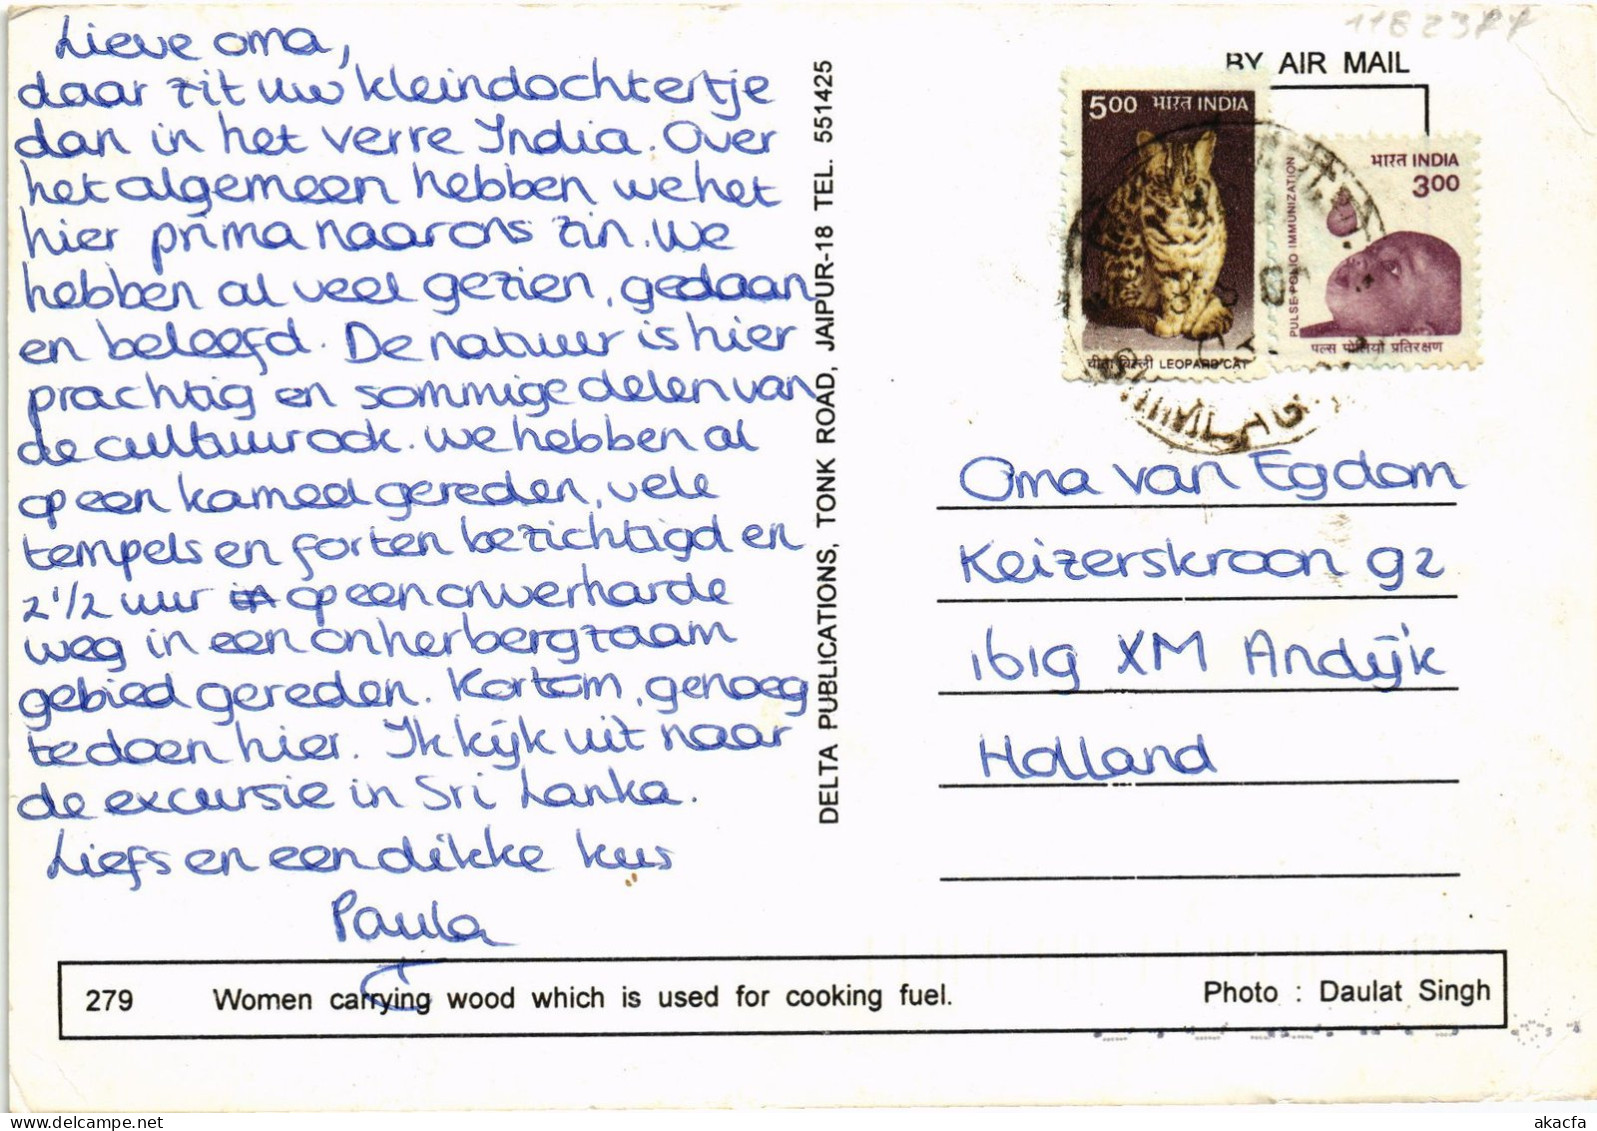 Lieve oma,
daar zit uw kleindochtertje
dan in het verre India. Over
het algemeen hebben we het
hier prima naar ons zin. We
hebben al veel gezien, gedaan
en beleefd. De natuur is hier
prachtig en sommige delen van
de cultuur ook. We hebben al
op een kameel gereden, vele
tempels en forten bezichtigd en
2 1/2 uur op een onverharde
weg in een onherbergzaam
gebied gereden. Kortom, genoeg
te doen hier. Ik kijk uit naar
de excursie in Sri Lanka.
Liefs en een dikke kus
Paula
DELTA PUBLICATIONS, TONK ROAD, JAIPUR-18 TEL. 551425
BY AIR MAIL
5.00 भारत INDIA
चीता बिल्ली LEOPARD CAT
भारत INDIA
3.00
PULSE POLIO IMMUNIZATION
पल्स पोलियो प्रतिरक्षण
Oma van Egdom
Keizerskroon 92
1619 XM Andijk
Holland
279 Women carrying wood which is used for cooking fuel. Photo : Daulat Singh
akacfa